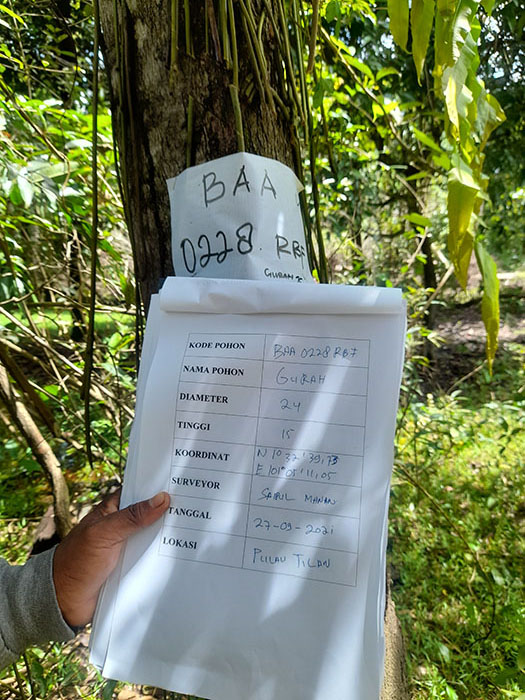 BAA
0228 RBF
GURAH
KODE POHON BAA 0228 RBF
NAMA POHON GURAH
DIAMETER 24
TINGGI 15
KOORDINAT N 1° 32' 39,73
E 101° 05' 11,05
SURVEYOR SAIPUL MANAN
TANGGAL 27-09-2021
LOKASI PULAU TILAN